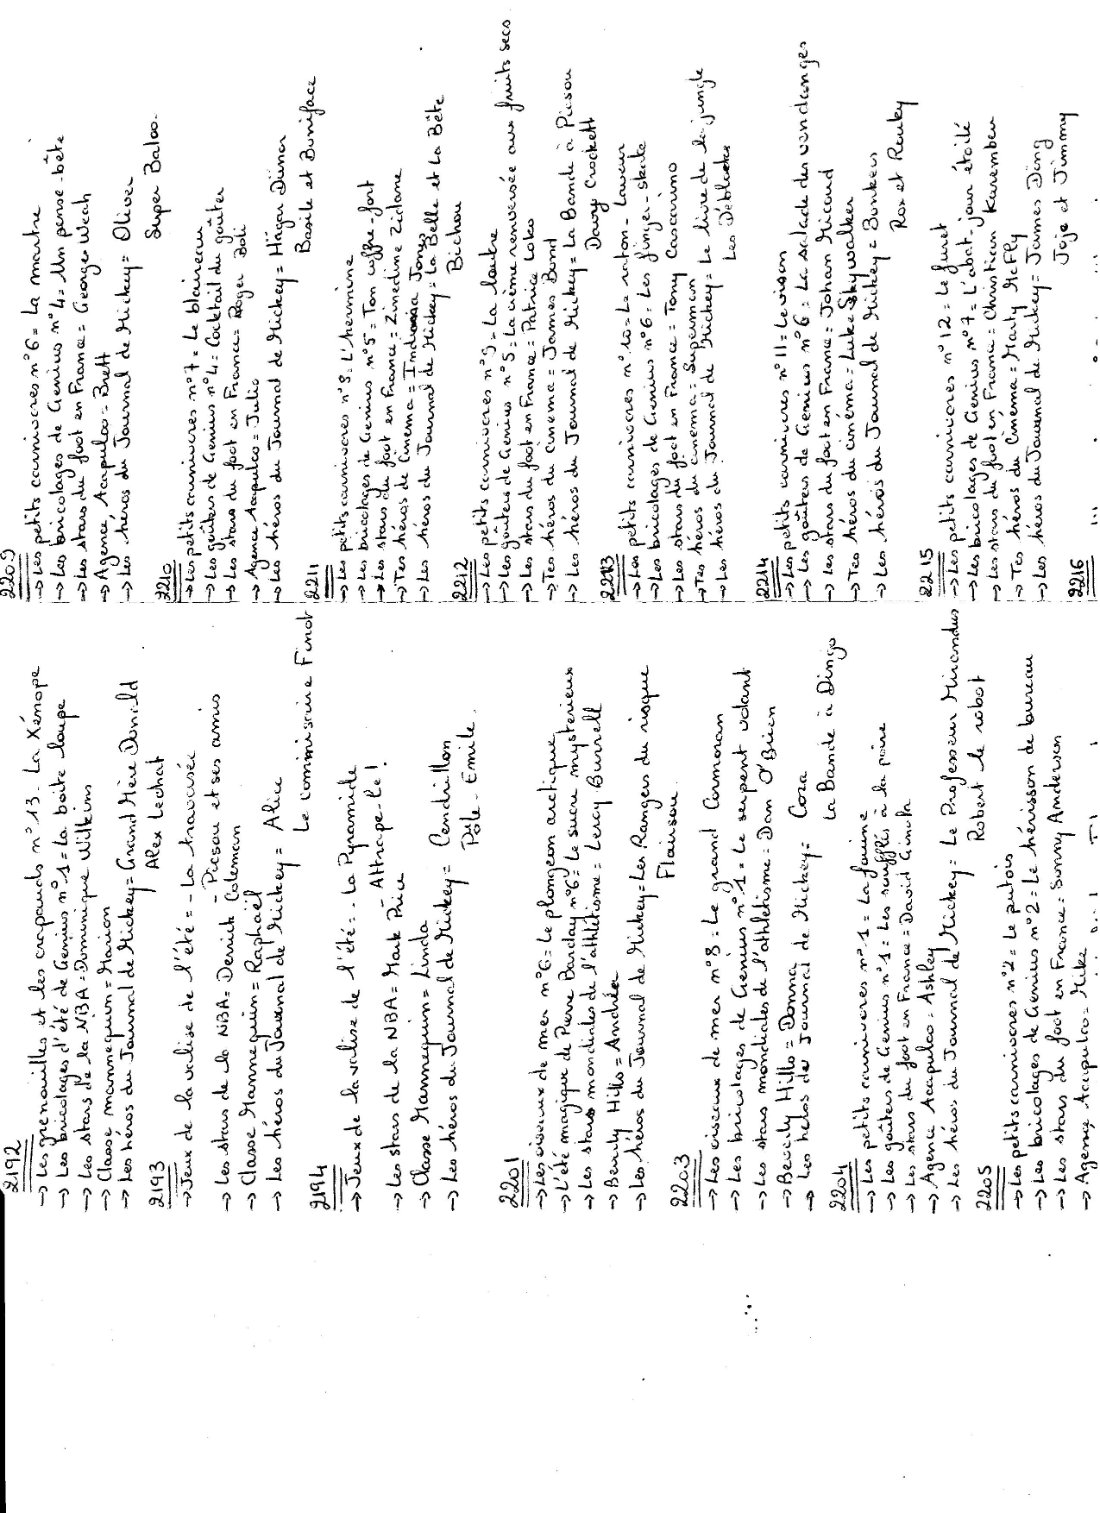 2192
→ Les grenouilles et les crapauds n°13 - La Xénope
→ Les bricolages d'été de Genius n°1 = La boîte loupe
→ Les stars de la NBA = Dominique Wilkins
→ Classe mannequin = Marion
→ Les héros du Journal de Mickey = Grand Mère Donald
Alex Lechat
2193
→ Jeux de la valise de l'été = - La traversée
- Picsou et ses amis
→ Les stars de la NBA = Derrick Coleman
→ Classe Mannequin = Raphaël
→ Les héros du Journal de Mickey = Alice
Le commissaire Finot
2194
→ Jeux de la valise de l'été = - La Pyramide
- Attrape-le !
→ Les stars de la NBA = Mark Price
→ Classe Mannequin = Linda
→ Les héros du Journal de Mickey = Cendrillon
Pôle - Emile.
2201
→ Les oiseaux de mer n°6 = Le plongeon arctique
→ L'été magique de Pierre Barclay n°6 = Le sucre mystérieux
→ Les stars mondiales de l'athlétisme = Leroy Burrell
→ Beverly Hills = Andréa
→ Les héros du Journal de Mickey = Les Rangers du risque
Flairsou
2203
→ Les oiseaux de mer n°8 = Le grand Cormoran
→ Les bricolages de Génius n°1 = Le serpent volant
→ Les stars mondiales de l'athlétisme = Dan O'Brien
→ Beverly Hills = Donna
→ Les héros du Journal de Mickey = Cora
La Bande à Dingo
2204
→ Les petits carnivores n°1 = La fouine
→ Les goûters de Génius n°1 = Les soufflés à la poire
→ Les stars du foot en France = David Ginola
→ Agence Acapulco = Ashley
→ Les héros du Journal de Mickey = Le Professeur Mirandus
Robert le robot
2205
→ Les petits carnivores n°2 = Le putois
→ Les bricolages de Genius n°2 = Le hérisson de bureau
→ Les stars du foot en France = Sunny Anderson
→ Agence Acapulco = Mike
2209
→ Les petits carnivores n°6 = La martre
→ Les bricolages de Genius n°4 = Un pense-bête
→ Les stars du foot en France = George Weah
→ Agence Acapulco = Brett
→ Les héros du Journal de Mickey = Oliver
Super Baloo.
2210
→ Les petits carnivores n°7 = Le blaireau
→ Les goûters de Génius n°4 = Cocktail du goûter
→ Les stars du foot en France = Roger Boli
→ Agence Acapulco = Julie
→ Les héros du Journal de Mickey = Hägar Dünor
Basile et Boniface
2211
→ Les petits carnivores n°8 = L'hermine
→ Les bricolages de Genius n°5 = Ton coffre-fort
→ Les stars du foot en France = Zinedine Zidane
→ Tes héros de cinéma = Indiana Jones
→ Les héros du Journal de Mickey = La Belle et la Bête
Bichou
2212
→ Les petits carnivores n°9 = La loutre
→ Les goûters de Genius n°5 = La crème renversée aux fruits secs
→ Les stars du foot en France = Patrice Loko
→ Tes héros du cinéma = James Bond
→ Les héros du Journal de Mickey = La Bande à Picsou
Davy Crockett
2213
→ Les petits carnivores n°10 = Le raton-laveur
→ Les bricolages de Genius n°6 = Les finger-skate
→ Les stars du foot en France = Tony Cascarino
→ Tes héros du cinéma = Superman
→ Les héros du Journal de Mickey = Le livre de la jungle
Les Déblocks
2214
→ Les petits carnivores n°11 = Le vison
→ Les goûters de Genius n°6 = La salade des vendanges
→ Les stars du foot en France = Johan Micoud
→ Tes héros du cinéma = Luke Skywalker
→ Les héros du Journal de Mickey = Bonkers
Rox et Rouky
2215
→ Les petits carnivores n°12 = Le furet
→ Les bricolages de Genius n°7 = L'abat-jour étoilé
→ Les stars du foot en France = Christian Karembeu
→ Tes héros du cinéma = Marty McFly
→ Les héros du Journal de Mickey = James Ding
Jojo et Jimmy
2216